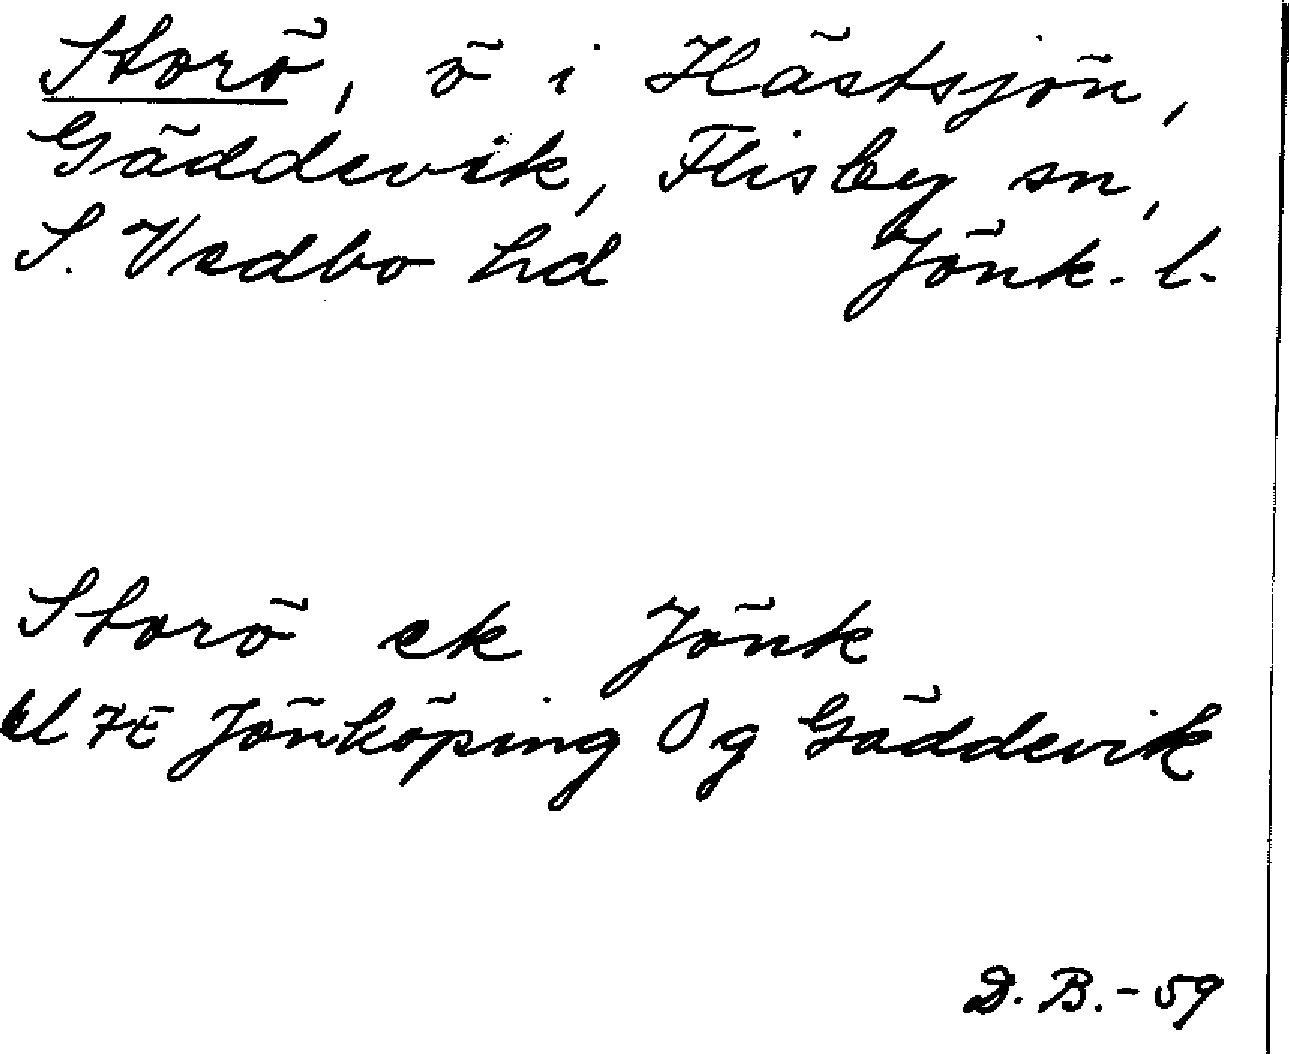 Storö, ö i Hästsjön,
Gäddevik, Flisby sn,
S. Vedbo hd Jönk. l.
Storö ek Jönk
bl 7E Jönköping Og Gäddevik
D. B. - 59